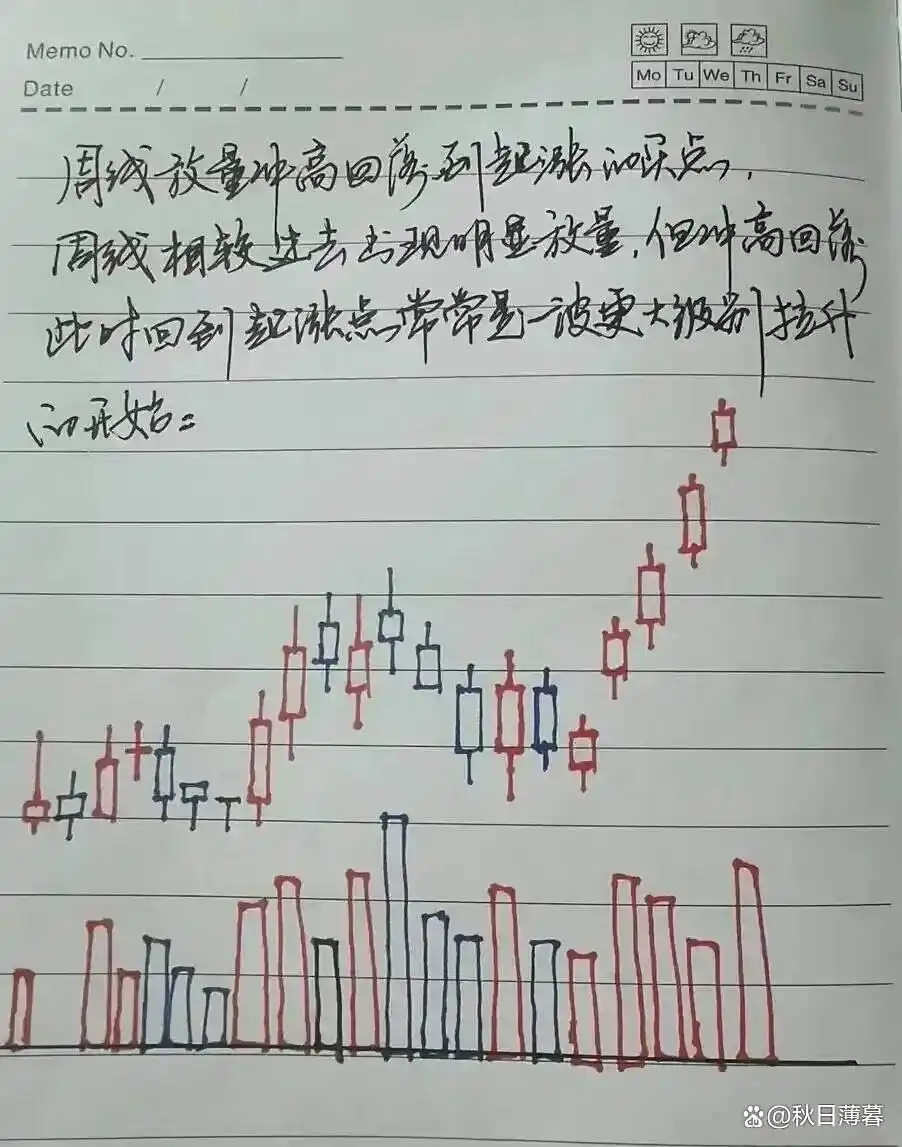 Memo No.
Date / /
Mo Tu We Th Fr Sa Su
周线放量冲高回落到起涨的买点,
周线相较过去出现明显放量,但冲高回落
此时回到起涨点常常是一波更大级别拉升
的开始:
@秋日薄暮